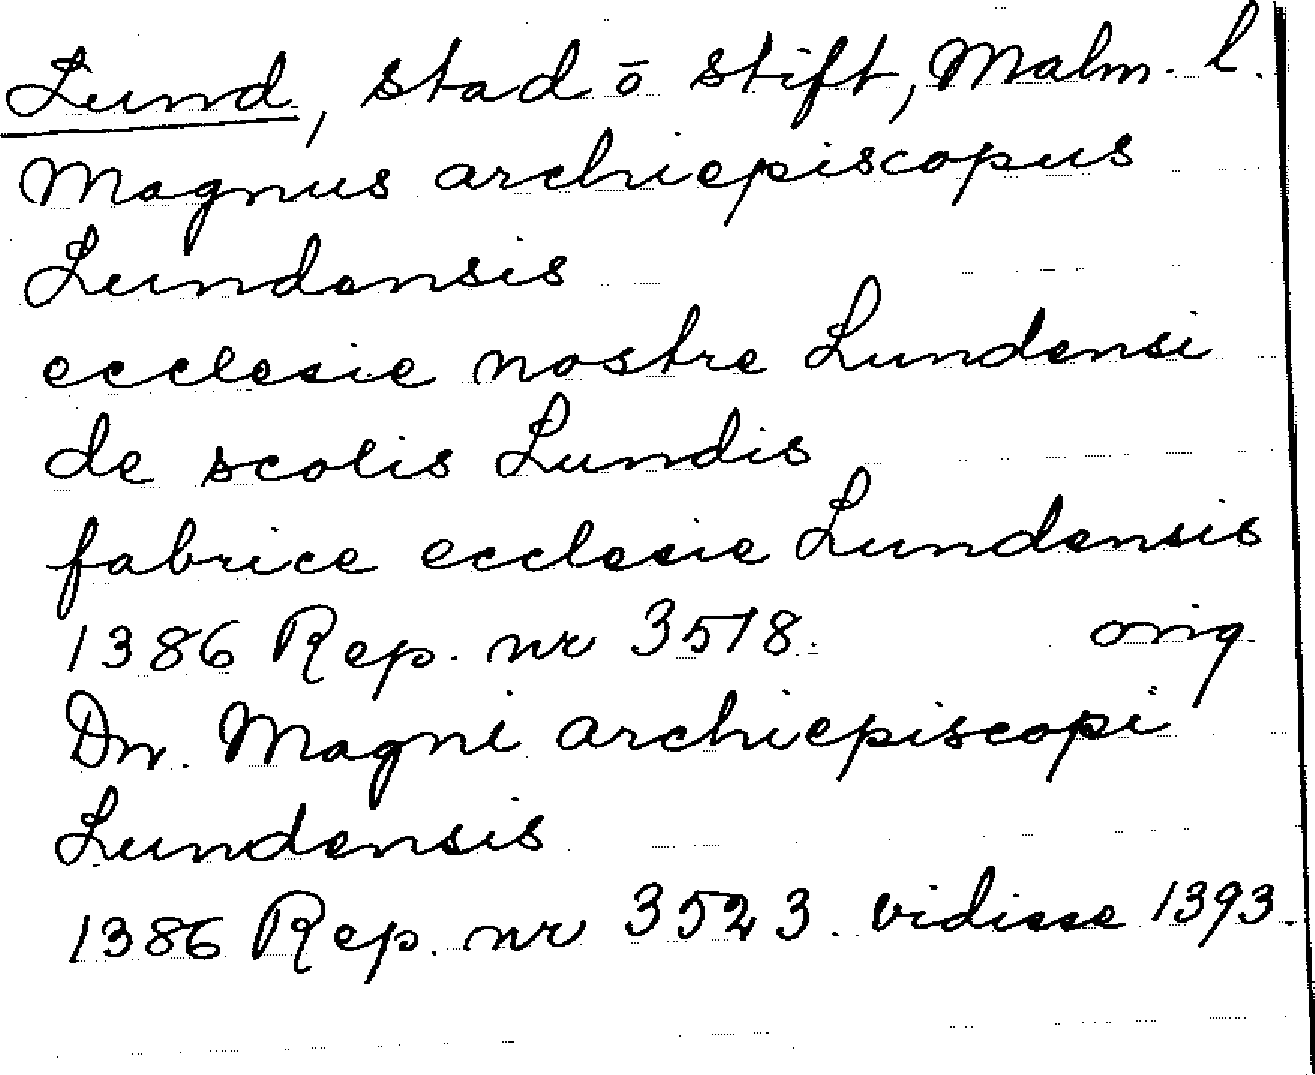 Lund, stad ō stift, Malm. l.
Magnus archiepiscopus
Lundensis
ecclesie nostre Lundensi
de scolis Lundis
fabrice ecclesie Lundensis
1386 Rep. nr 3518. orig
Dn. Magni archiepiscopi
Lundensis
1386 Rep. nr 3523. vidisse 1393.